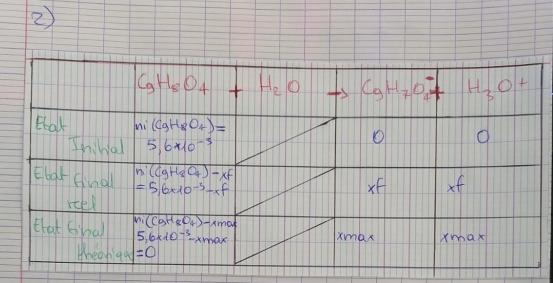 2)
C9H8O4 + H2O → C9H7O4- + H3O+
Etat Initial
ni(C9H8O4)=
5,6×10-3
0
0
Etat final réel
n(C9H8O4)-xf
=5,6×10-3-xf
xf
xf
Etat final théorique
ni(C9H8O4)-xmax
5,6×10-3-xmax
=0
xmax
xmax